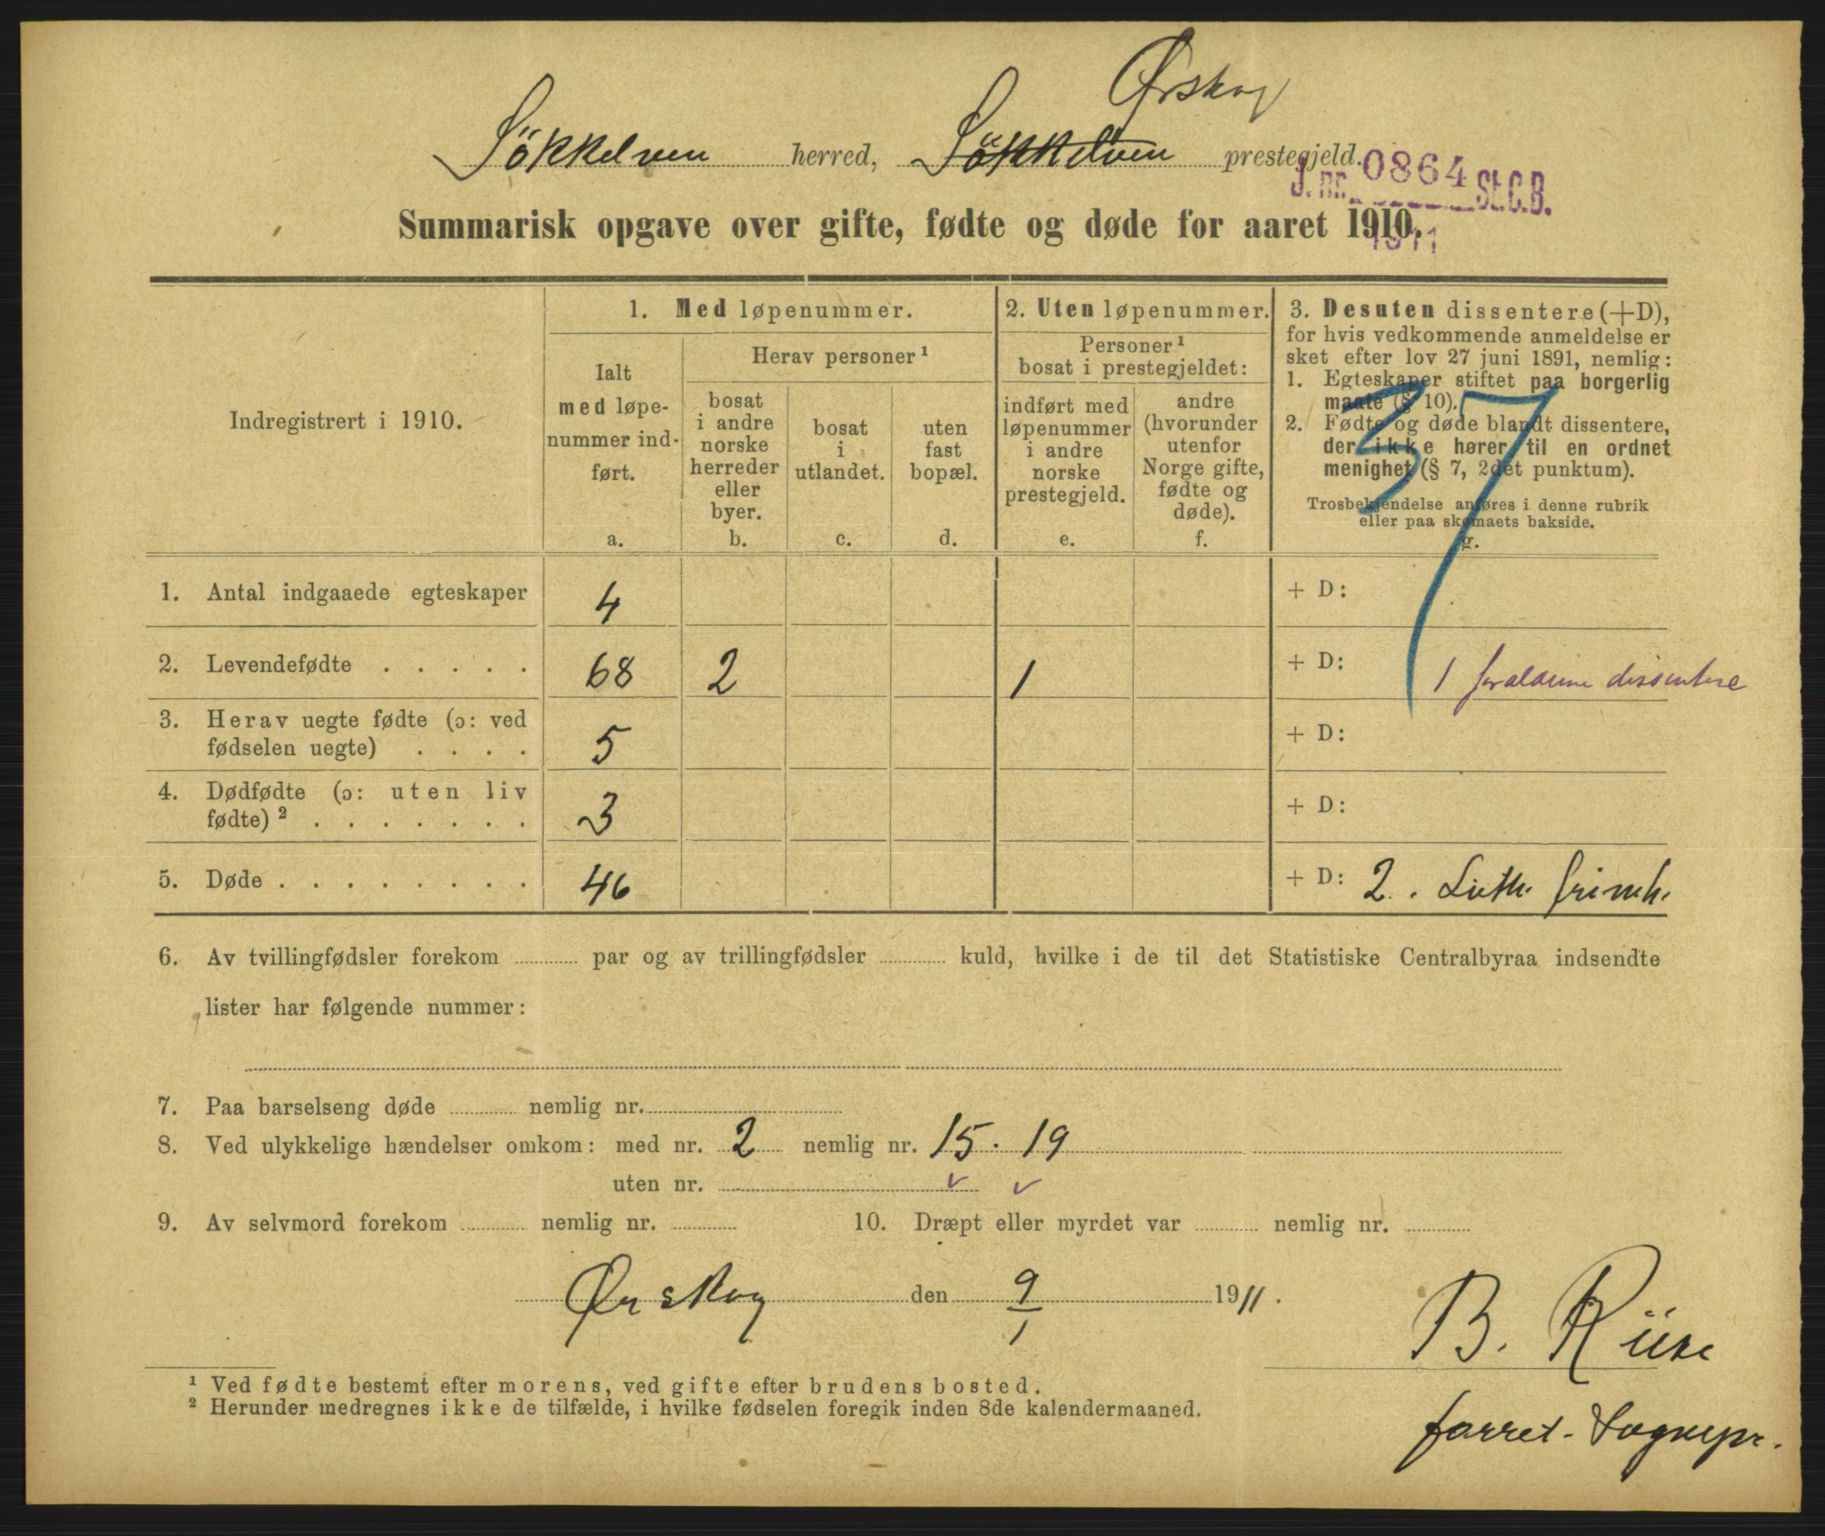 Ørskog
Søkkelven herred, Søkkelven prestegjeld.
J. nr. 0864 St.C.B.
1911
Summarisk opgave over gifte, fødte og døde for aaret 1910.
Indregistrert i 1910.
1. Med løpenummer.
Ialt
med løpe-
nummer ind-
ført.
a.
Herav personer ¹
bosat
i andre
norske
herreder
eller
byer.
b.
bosat
i
utlandet.
c.
uten
fast
bopæl.
d.
2. Uten løpenummer.
Personer ¹
bosat i prestegjeldet:
indført med
løpenummer
i andre
norske
prestegjeld.
e.
andre
(hvorunder
utenfor
Norge gifte,
fødte og
døde).
f.
3. Desuten dissentere (+D),
for hvis vedkommende anmeldelse er
sket efter lov 27 juni 1891, nemlig:
1. Egteskaper stiftet paa borgerlig
maate (§ 10).
2. Fødte og døde blandt dissentere,
der ikke hører til en ordnet
menighet (§ 7, 2det punktum).
Trosbekjendelse anføres i denne rubrik
eller paa skemaets bakside.
g.
37
1. Antal indgaaede egteskaper 4 + D:
2. Levendefødte . . . . . 68 2 1 + D: 1 forældrene dissentere
3. Herav uegte fødte (ɔ: ved
fødselen uegte) . . . . 5 + D:
4. Dødfødte (ɔ: uten liv
fødte) ² . . . . . . . 3 + D:
5. Døde . . . . . . . . 46 + D: 2. Luth. frimh.
6. Av tvillingfødsler forekom par og av trillingfødsler kuld, hvilke i de til det Statistiske Centralbyraa indsendte
lister har følgende nummer:
7. Paa barselseng døde nemlig nr.
8. Ved ulykkelige hændelser omkom: med nr. 2 nemlig nr. 15. 19
uten nr. ✓ ✓
9. Av selvmord forekom nemlig nr. 10. Dræpt eller myrdet var nemlig nr.
Ørskog den 9/1 1911.
B. Riise
forret. Sognepr.
¹ Ved fødte bestemt efter morens, ved gifte efter brudens bosted.
² Herunder medregnes ikke de tilfælde, i hvilke fødselen foregik inden 8de kalendermaaned.